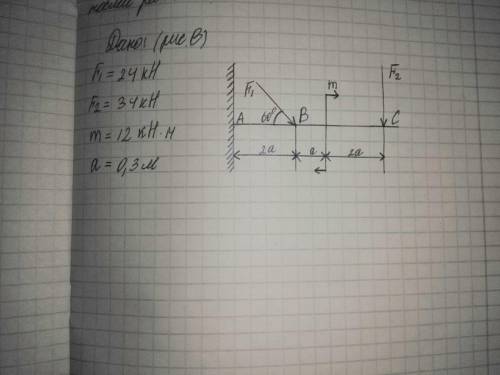 Дано: (рис. В)
F₁ = 24 кН
F₂ = 34 кН
m = 12 кН·м
a = 0,3 м
F₁
m
F₂
A
60°
B
C
2a
a
2a